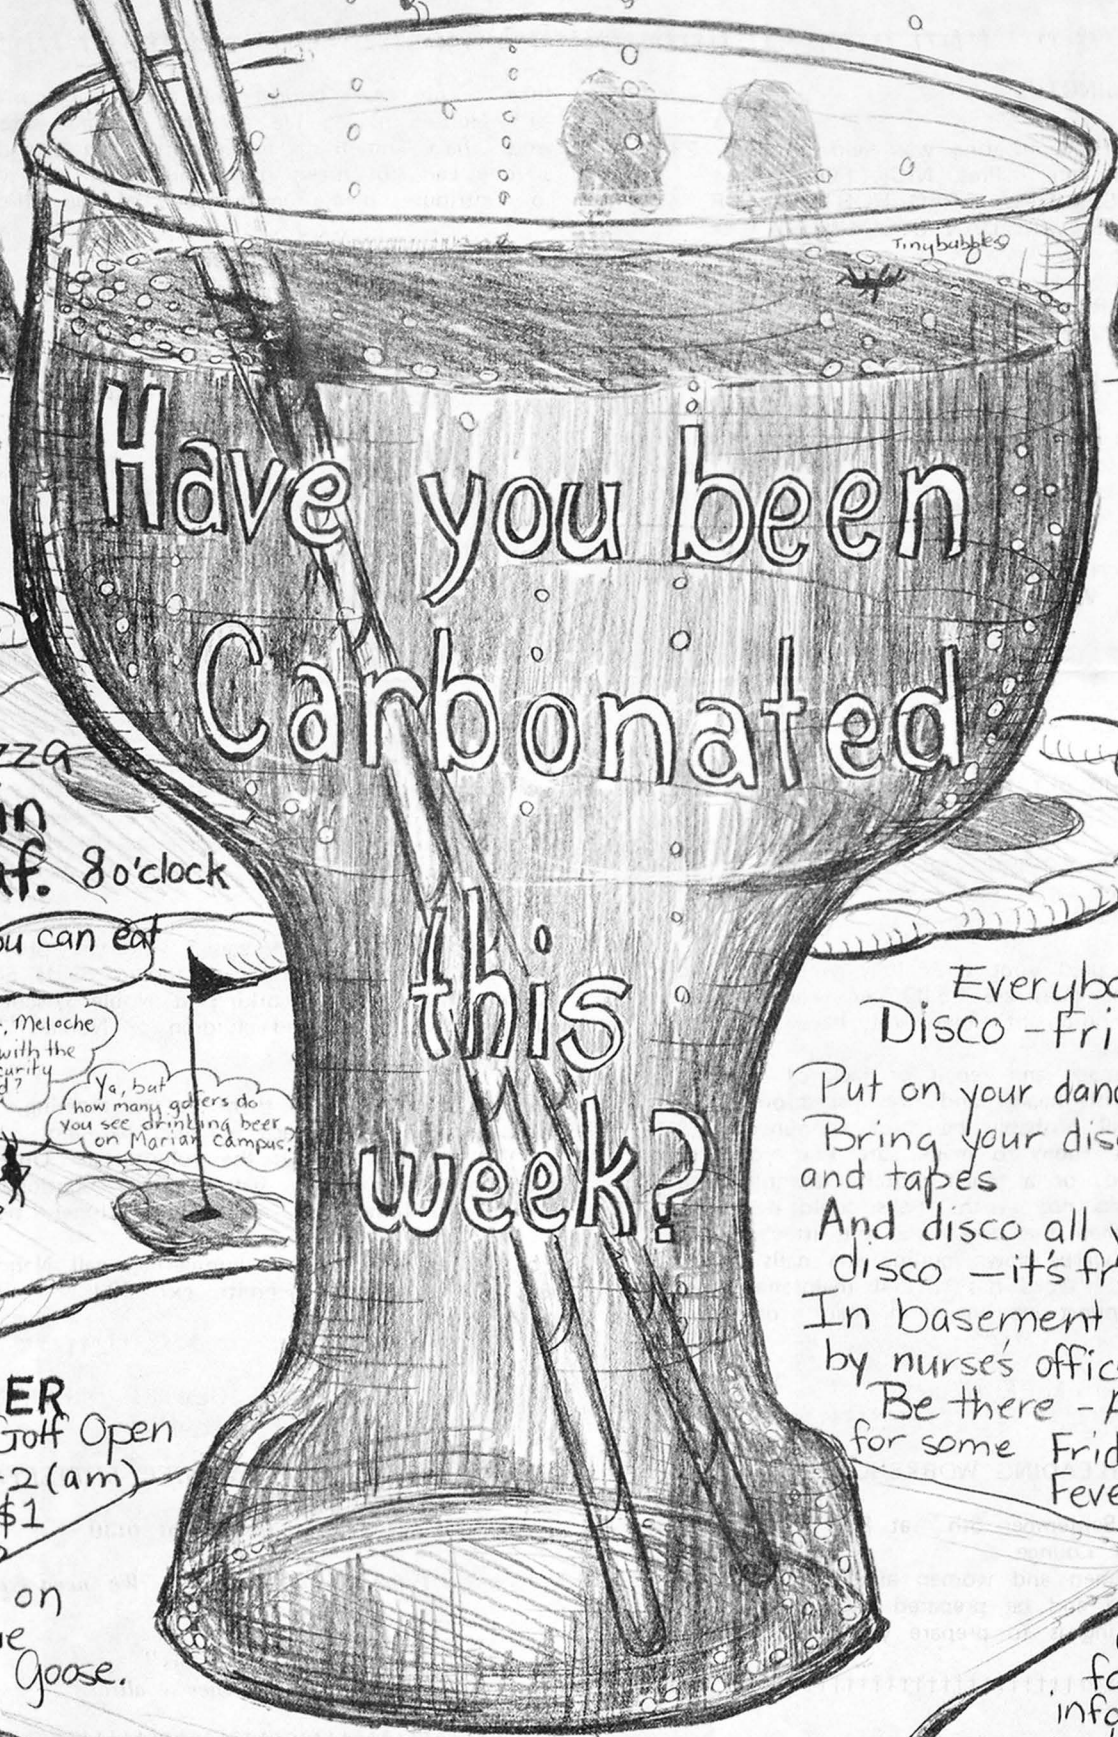 Tinybubbles
Have you been
Carbonated
this
week?
zza
in
af. 8 o'clock
ou can eat
, Meloche
with the
curity
d?
Ya, but
how many golfers do
you see drinking beer
on Marian campus?
ER
Golf Open
-2 (am)
$1
on
Goose.
Everybo
Disco - Fri
Put on your danc
Bring your dis
and tapes
And disco all
disco - it's fr
In basement
by nurse's offic
Be there -
for some Frid
Feve
fo
info